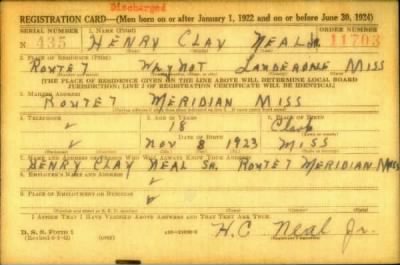 Discharged
REGISTRATION CARD—(Men born on or after January 1, 1922 and on or before June 30, 1924)
SERIAL NUMBER 1. Name (Print) ORDER NUMBER
N 435 HENRY CLAY NEAL JR. 11703
2. Place of Residence (Print)
ROUTE 7 WHYNOT LAUDERDALE MISS
[THE PLACE OF RESIDENCE GIVEN ON THE LINE ABOVE WILL DETERMINE LOCAL BOARD
JURISDICTION; LINE 2 OF REGISTRATION CERTIFICATE WILL BE IDENTICAL]
3. Mailing Address
ROUTE 7 MERIDIAN MISS
4. Telephone 5. Age in Years 6. Place of Birth
✓ 18 Clark
Date of Birth
✓ NOV 8 1923 MISS
7. Name and Address of Person Who Will Always Know Your Address
HENRY CLAY NEAL SR. ROUTE 7 MERIDIAN MISS
8. Employer's Name and Address
✓
9. Place of Employment or Business
✓
I Affirm That I Have Verified Above Answers and That They Are True.
D. S. S. Form 1
(over)
H.C. Neal Jr.